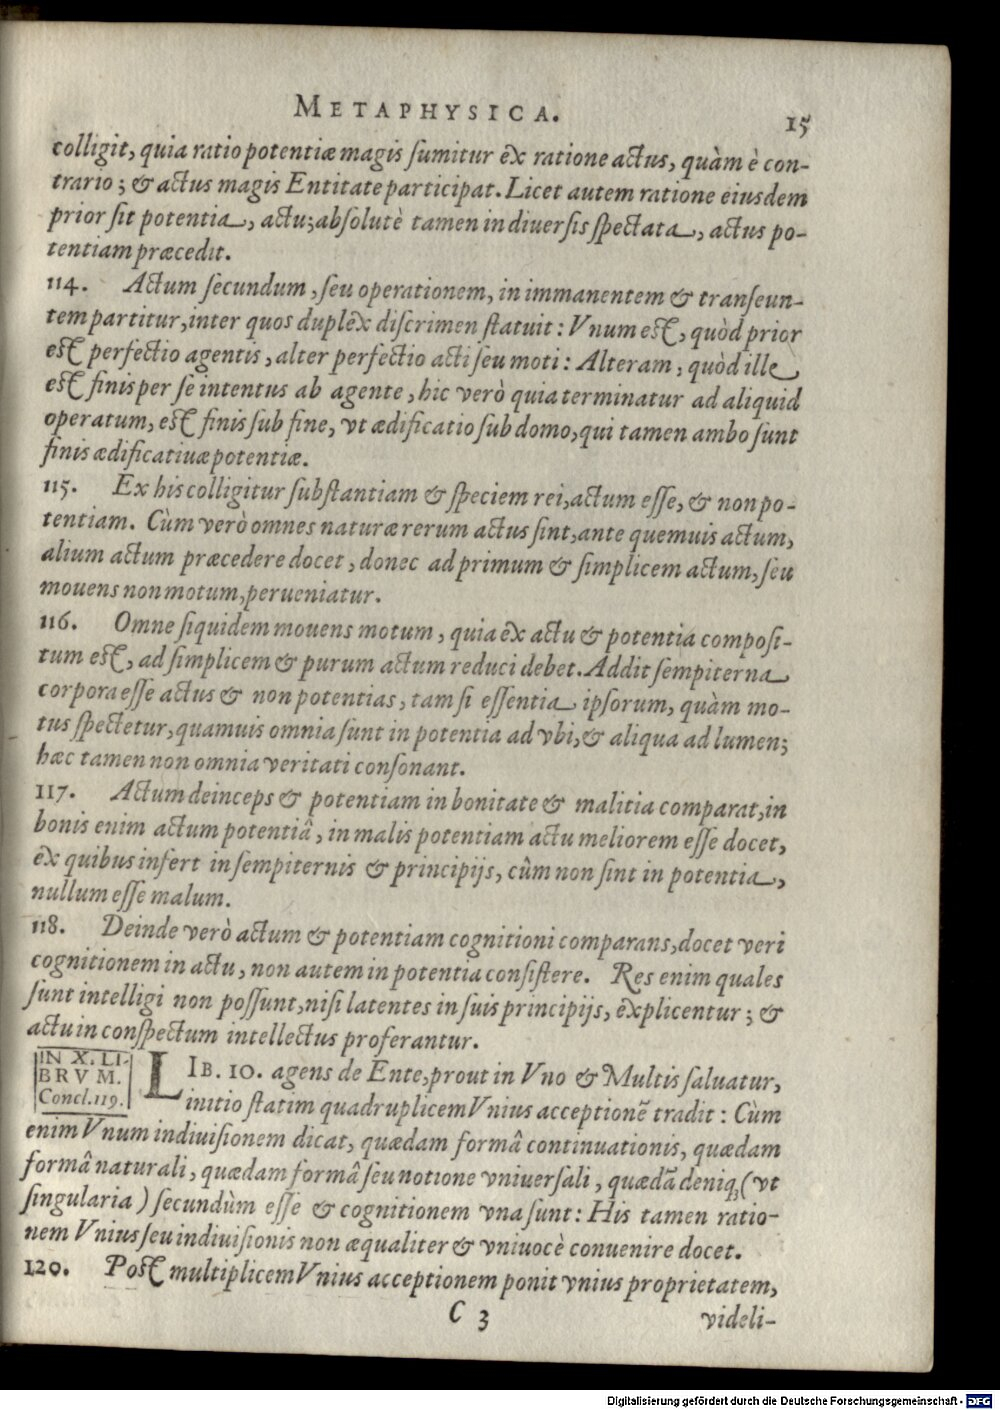 METAPHYSICA. 15
colligit, quia ratio potentiæ magis sumitur ex ratione actus, quàm è con-
trario; & actus magis Entitate participat. Licet autem ratione eiusdem
prior sit potentia, actu; absolutè tamen in diuersis spectata, actus po-
tentiam præcedit.
114. Actum secundum, seu operationem, in immanentem & transeun-
tem partitur, inter quos duplex discrimen statuit: Vnum est, quòd prior
est perfectio agentis, alter perfectio acti seu moti: Alteram, quòd ille
est finis per se intentus ab agente, hic verò quia terminatur ad aliquid
operatum, est finis sub fine, vt ædificatio sub domo, qui tamen ambo sunt
finis ædificatiuæ potentiæ.
115. Ex his colligitur substantiam & speciem rei, actum esse, & non po-
tentiam. Cùm verò omnes naturæ rerum actus sint, ante quemuis actum,
alium actum præcedere docet, donec ad primum & simplicem actum, seu
mouens non motum, perueniatur.
116. Omne siquidem mouens motum, quia ex actu & potentia composi-
tum est, ad simplicem & purum actum reduci debet. Addit sempiterna
corpora esse actus & non potentias, tam si essentia ipsorum, quàm mo-
tus spectetur, quamuis omnia sunt in potentia ad vbi, & aliqua ad lumen;
hæc tamen non omnia veritati consonant.
117. Actum deinceps & potentiam in bonitate & malitia comparat, in
bonis enim actum potentiâ, in malis potentiam actu meliorem esse docet,
ex quibus infert in sempiternis & principijs, cûm non sint in potentia,
nullum esse malum.
118. Deinde verò actum & potentiam cognitioni comparans, docet veri
cognitionem in actu, non autem in potentia consistere. Res enim quales
sunt intelligi non possunt, nisi latentes in suis principijs, explicentur; &
actu in conspectum intellectus proferantur.
IN X. LI-
BRVM.
Concl. 119.
LIB. 10. agens de Ente, prout in Vno & Multis saluatur,
initio statim quadruplicem Vnius acceptionẽ tradit: Cùm
enim Vnum indiuisionem dicat, quædam formâ continuationis, quædam
formâ naturali, quædam formâ seu notione vniuersali, quædã deniq; (vt
singularia) secundùm esse & cognitionem vna sunt: His tamen ratio-
nem Vnius seu indiuisionis non æqualiter & vniuocè conuenire docet.
120. Post multiplicem Vnius acceptionem ponit vnius proprietatem,
C 3 videli-
Digitalisierung gefördert durch die Deutsche Forschungsgemeinschaft - DFG